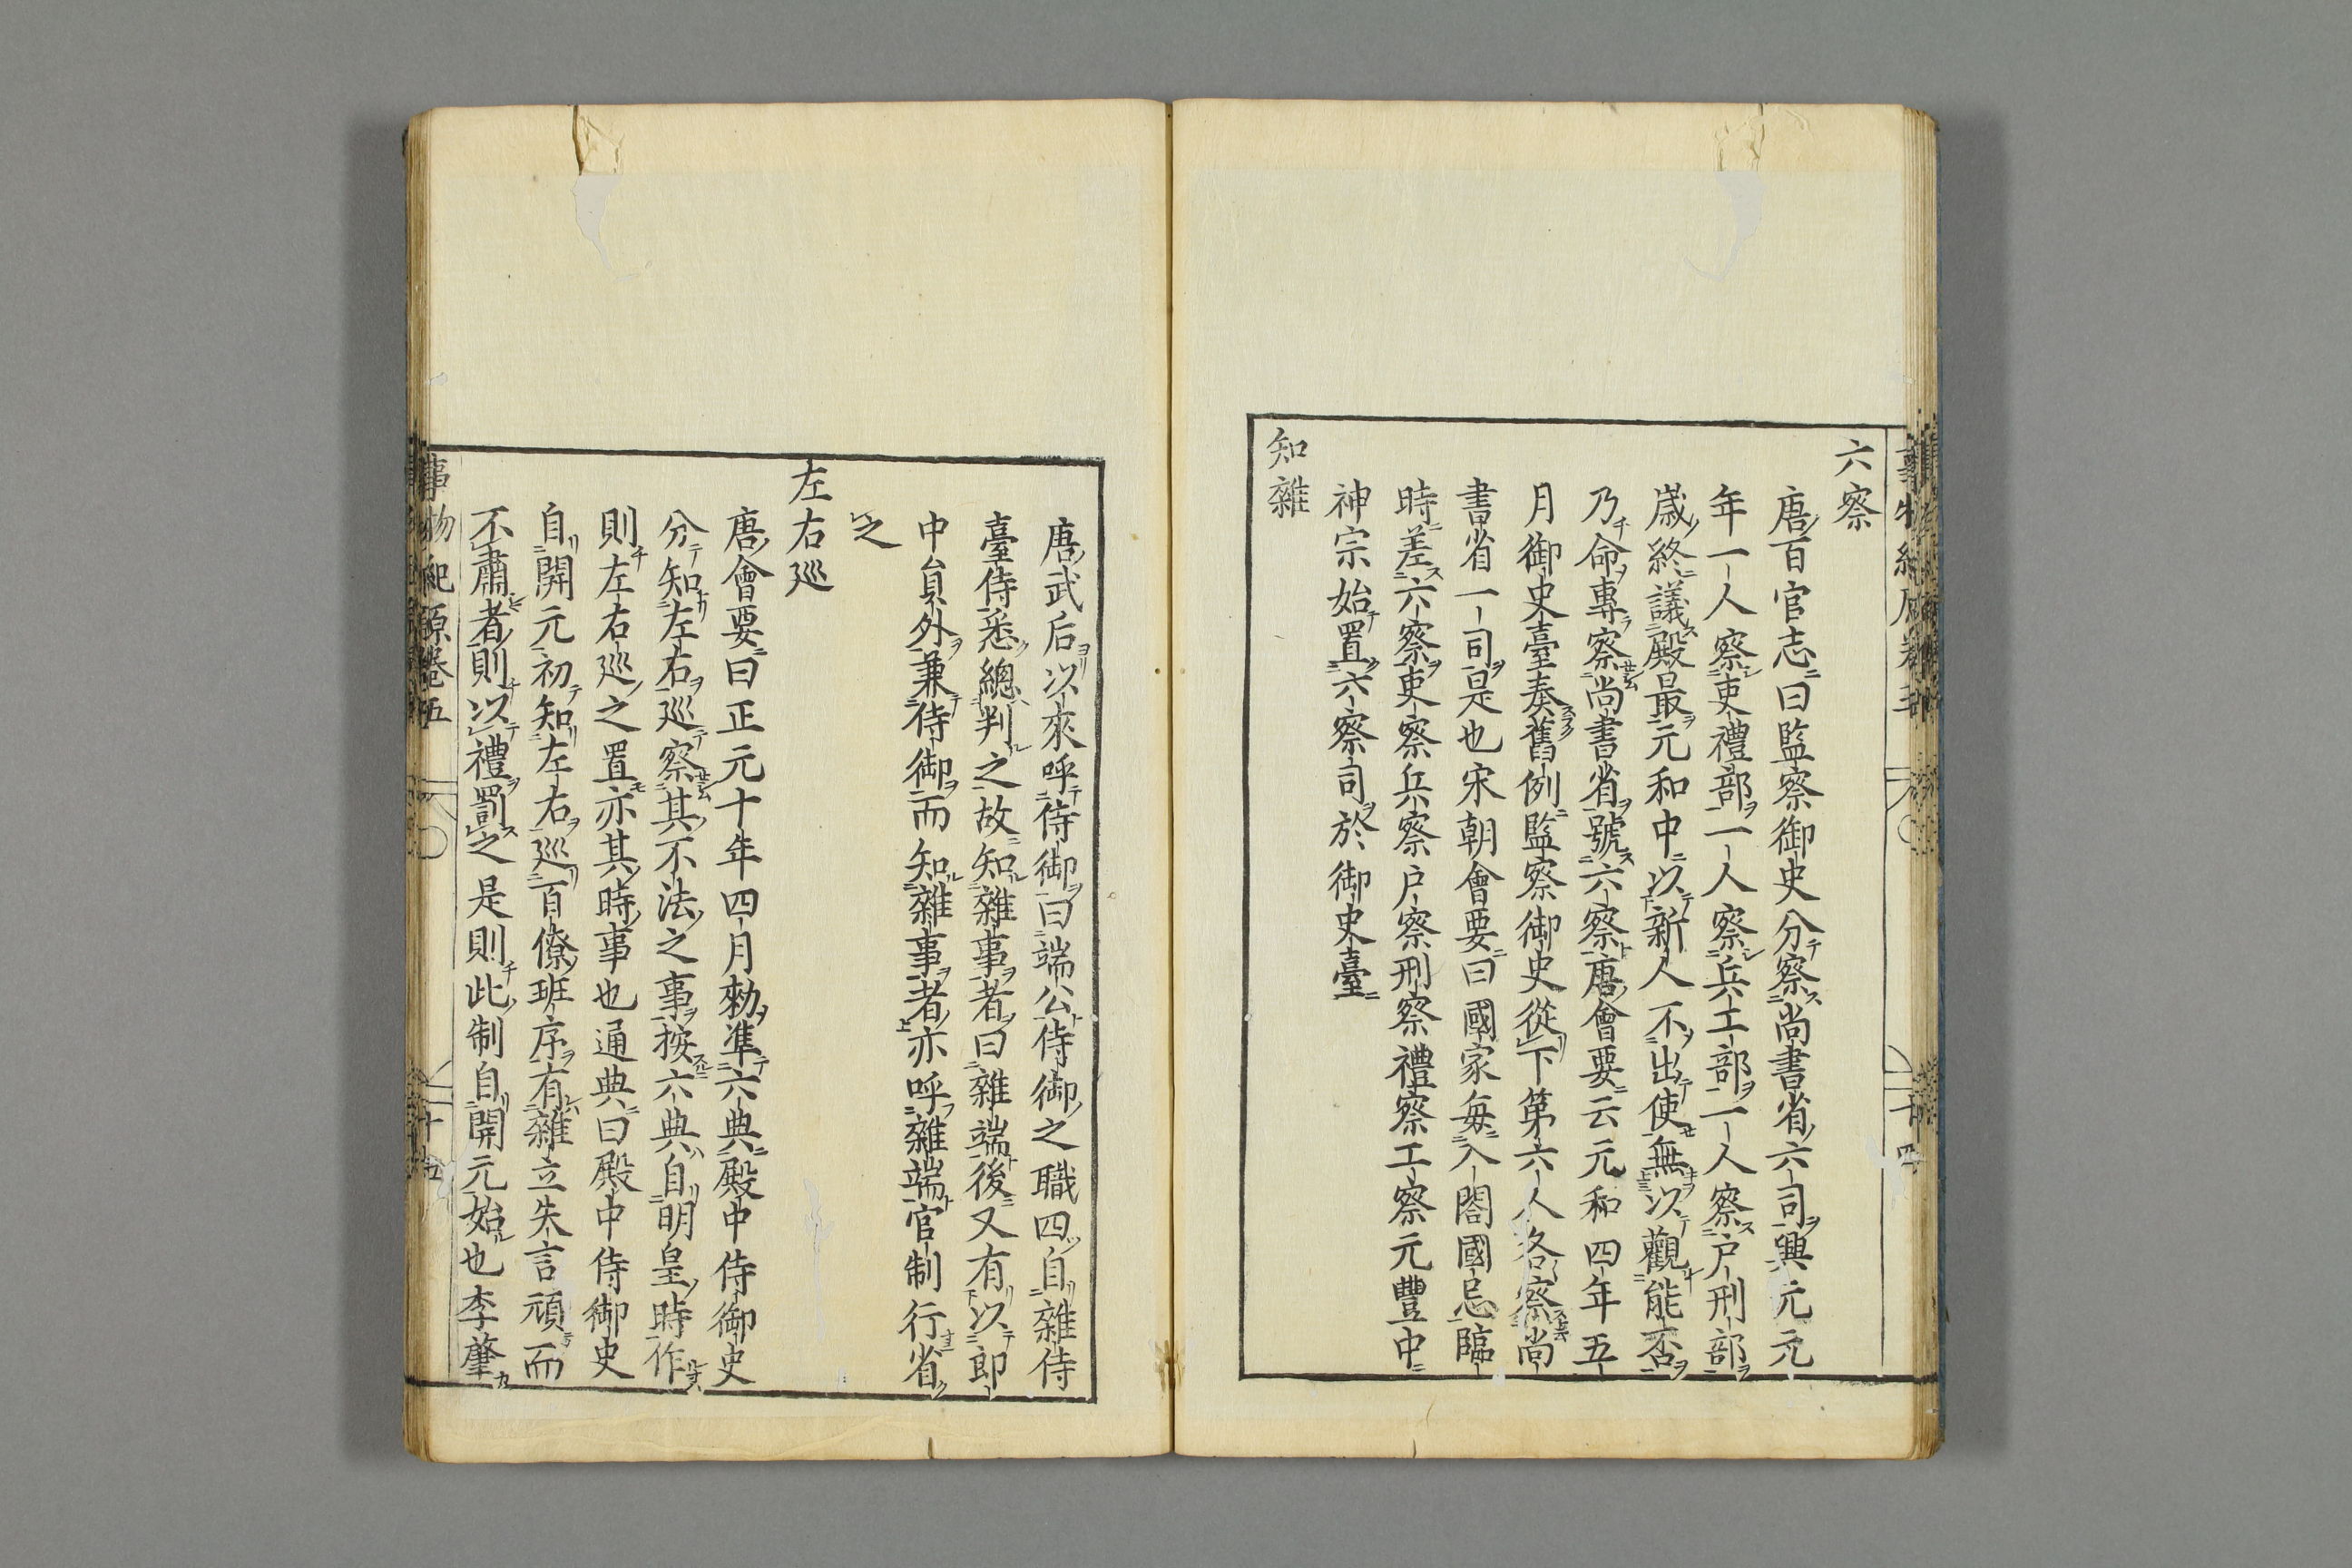 六察
唐百官志曰監察御史分察尚書省六司興元元
年一人察吏禮部一人察兵工部一人察户刑部
歳終議殿最元和中以新人不出使無以觀能否
乃命專察尚書省號六察唐會要云元和四年五
月御史臺奏舊例監察御史從下第六人各察尚
書省一司是也宋朝會要曰國家毎入閤國忌臨
時差六察吏察兵察户察刑察禮察工察元豐中
神宗始置六察司於御史臺
知雜
唐武后以來呼侍御曰端公侍御之職四自雜侍
臺侍悉總判之故知雜事者曰雜端後又有以郎
中貟外兼侍御而知雜事者亦呼雜端官制行省
之
左右巡
唐會要曰正元十年四月勑準六典殿中侍御史
分知左右巡察其不法之事按六典自明皇時作
則左右巡之置亦其時事也通典曰殿中侍御史
自開元初知左右巡百僚班序有雜立失言頑而
不肅者則以禮罰之是則此制自開元始也李肇
事物紀原卷五 十五